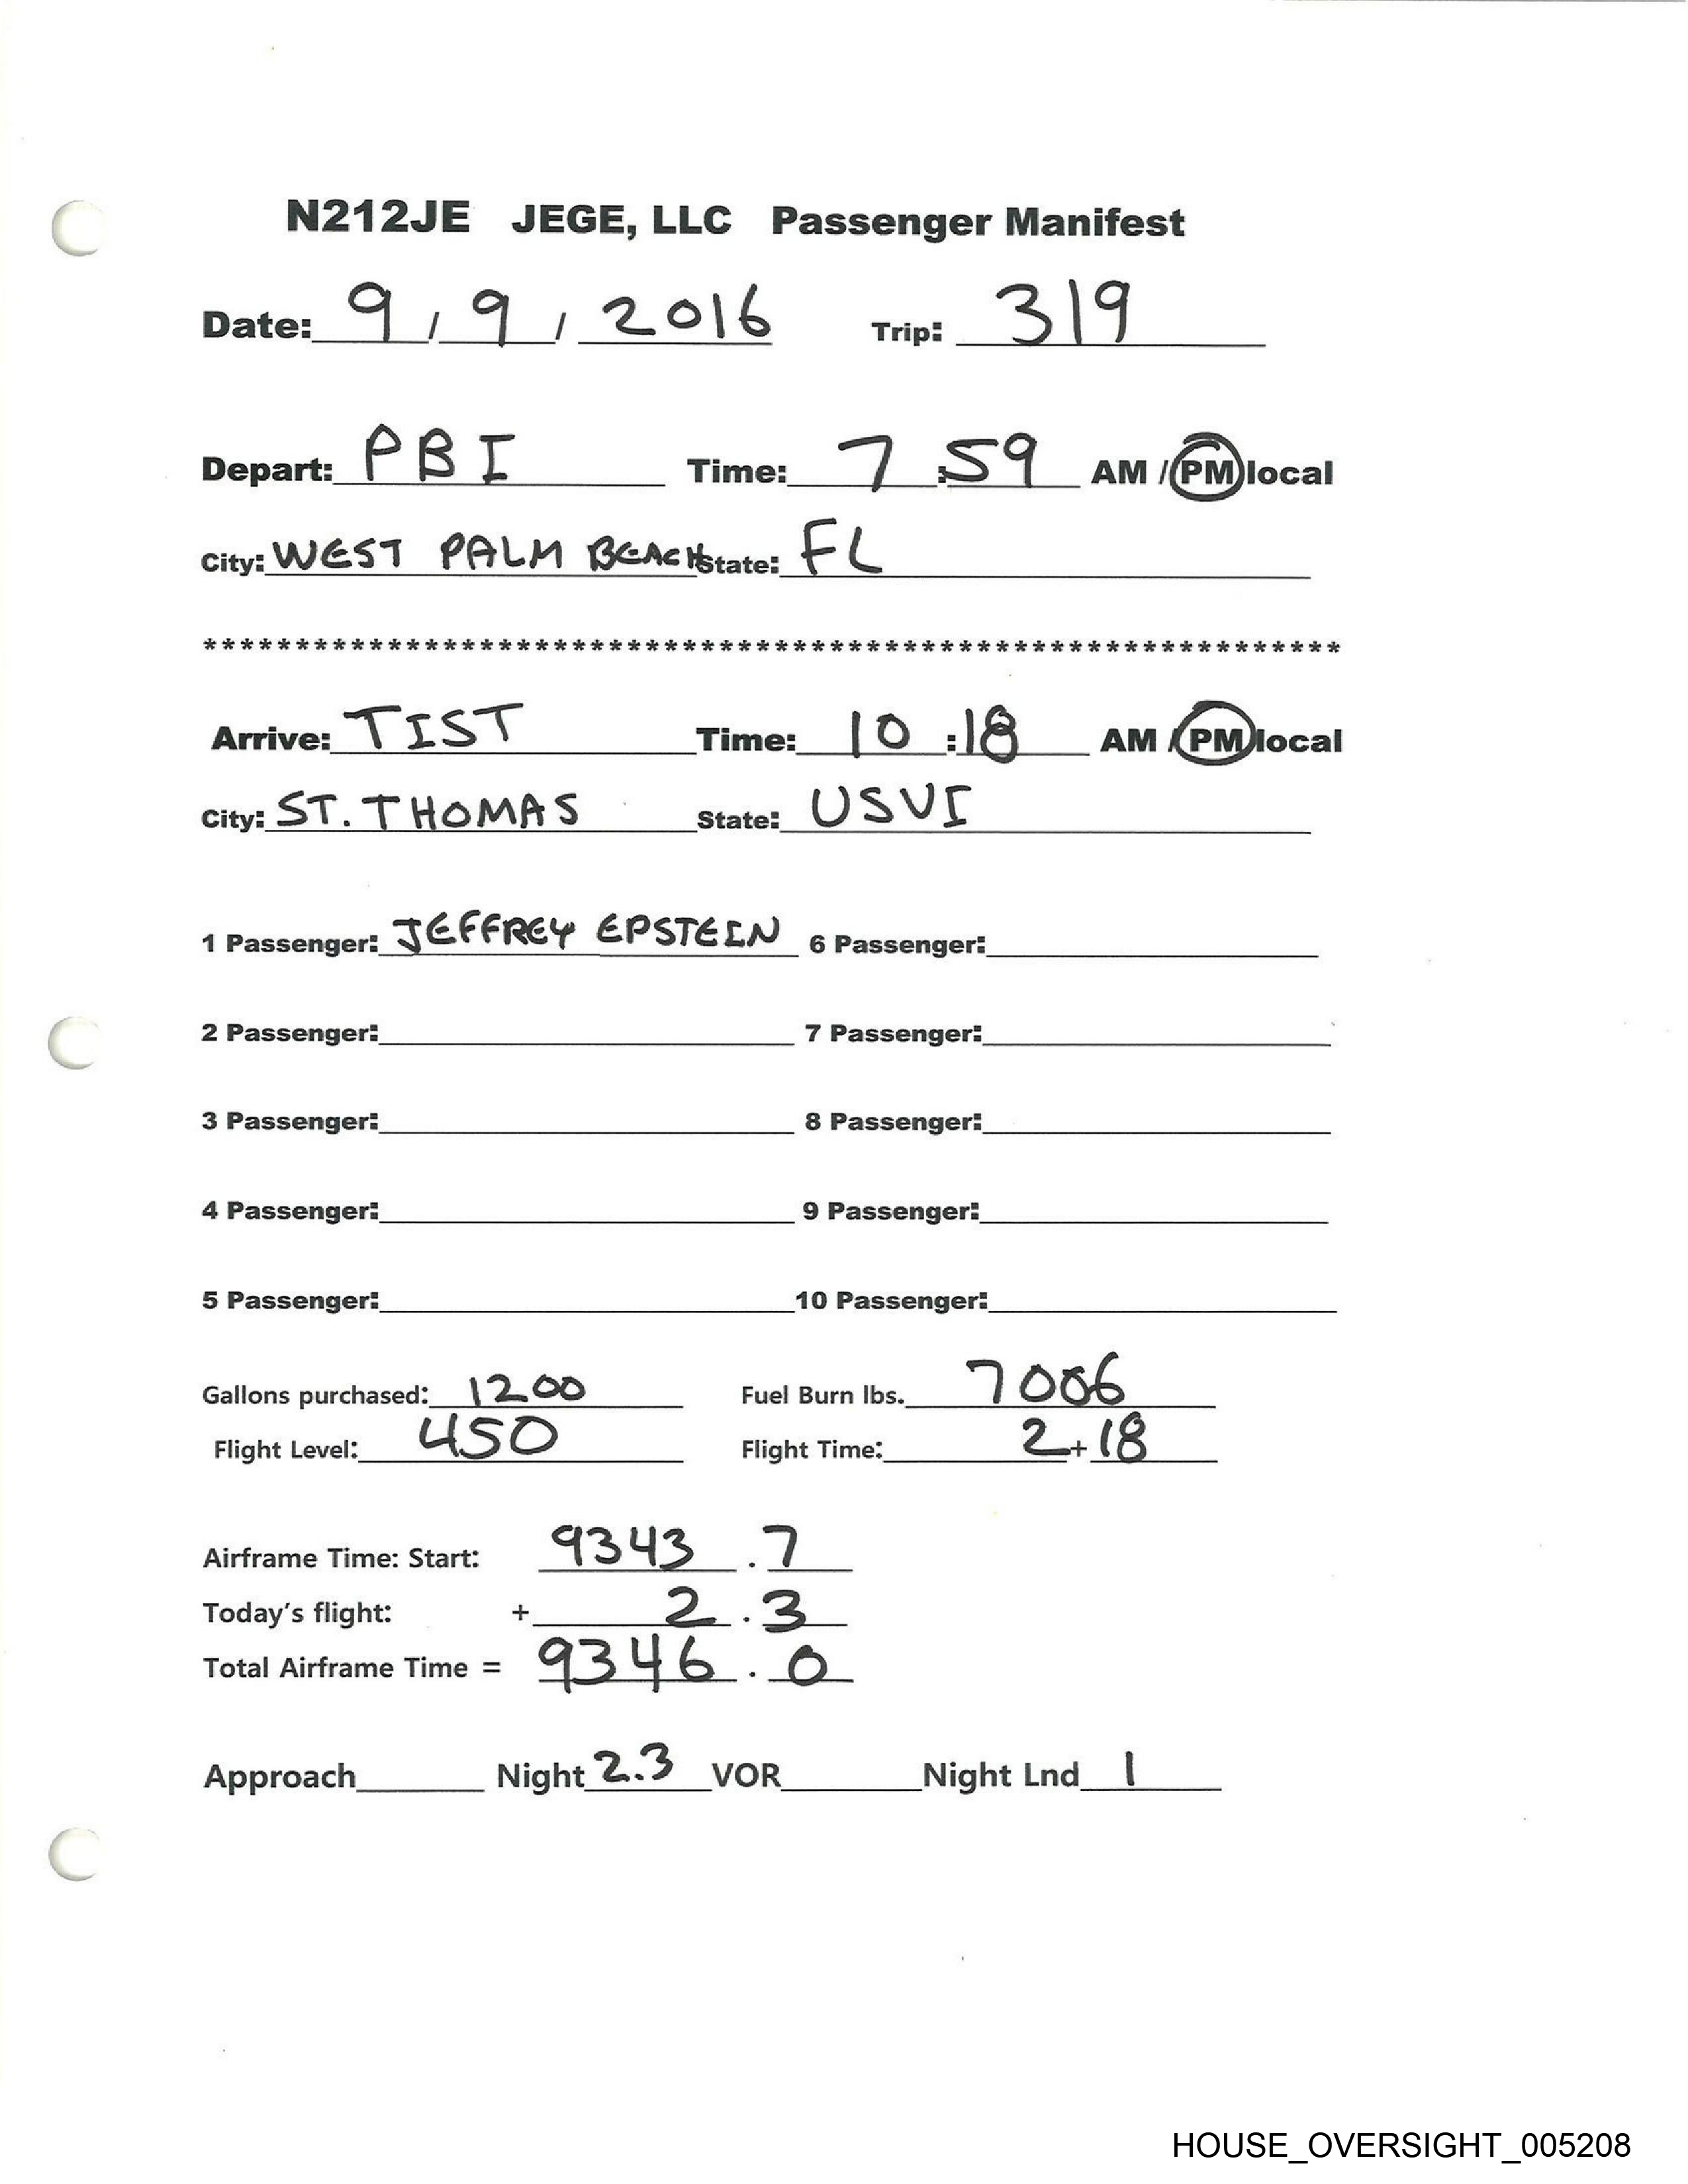 N212JE JEGE, LLC Passenger Manifest
Date: 9 / 9 / 2016 Trip: 319
Depart: PBI Time: 7:59 AM / PM local
City: WEST PALM BEACH State: FL
**************************************************************
Arrive: TIST Time: 10:18 AM / PM local
City: ST. THOMAS State: USVI
1 Passenger: JEFFREY EPSTEIN 6 Passenger:
2 Passenger: 7 Passenger:
3 Passenger: 8 Passenger:
4 Passenger: 9 Passenger:
5 Passenger: 10 Passenger:
Gallons purchased: 1200 Fuel Burn lbs. 7006
Flight Level: 450 Flight Time: 2+18
Airframe Time: Start: 9343.7
Today's flight: + 2.3
Total Airframe Time = 9346.0
Approach Night 2.3 VOR Night Lnd 1
HOUSE_OVERSIGHT_005208